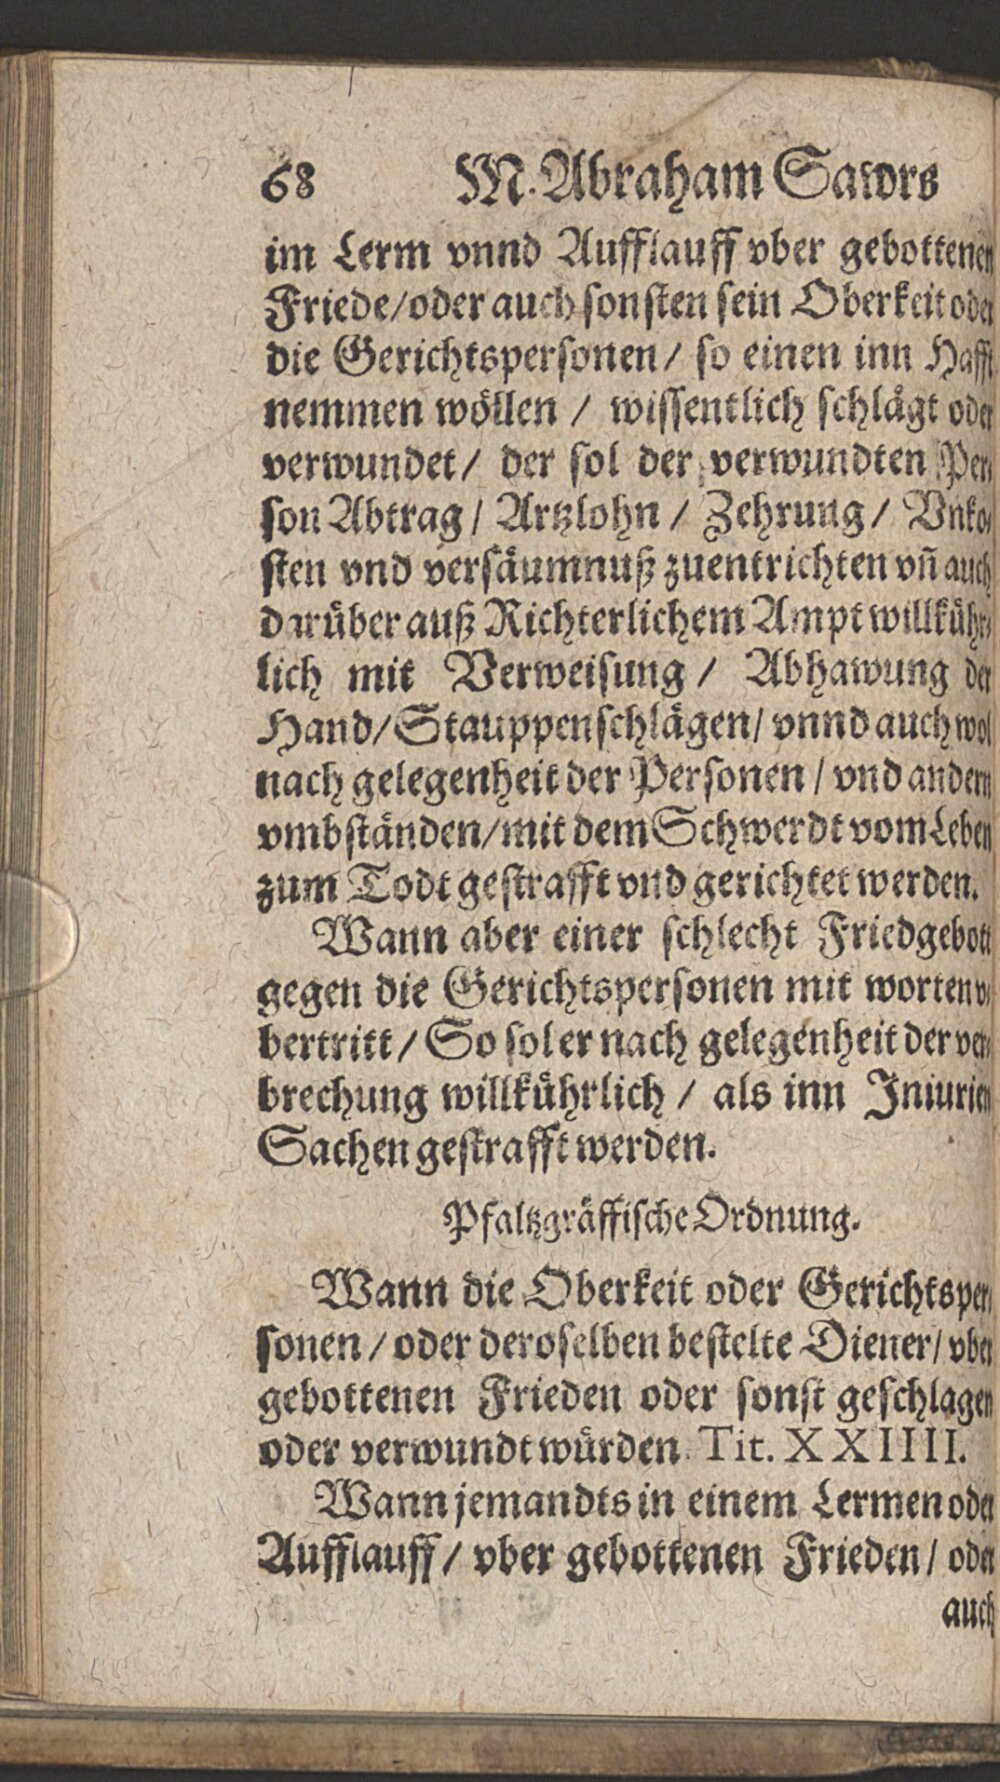 68 M. Abraham Sawrs
im Lerm vnnd Aufflauff vber gebottenen
Friede/oder auch sonsten sein Oberkeit oder
die Gerichtspersonen/ so einen inn Hafft
nemmen wöllen / wissentlich schlägt oder
verwundet/ der sol der verwundten Per-
son Abtrag/ Artzlohn / Zehrung/ Vnko-
sten vnd versäumnuß zuentrichten vñ auch
darüber auß Richterlichem Ampt willkühr-
lich mit Verweisung / Abhawung der
Hand/Stauppenschlägen/ vnnd auch wol
nach gelegenheit der Personen / vnd andern
vmbständen/mit dem Schwerdt vom Leben
zum Todt gestrafft vnd gerichtet werden.
Wann aber einer schlecht Friedgebott
gegen die Gerichtspersonen mit worten v-
bertritt/ So sol er nach gelegenheit der ver-
brechung willkührlich / als inn Iniurien
Sachen gestrafft werden.
Pfaltzgräffische Ordnung.
Wann die Oberkeit oder Gerichtsper-
sonen / oder deroselben bestelte Diener/ vber
gebottenen Frieden oder sonst geschlagen
oder verwundt würden. Tit. XXIIII.
Wann jemandts in einem Lermen oder
Aufflauff/ vber gebottenen Frieden/ oder
auch